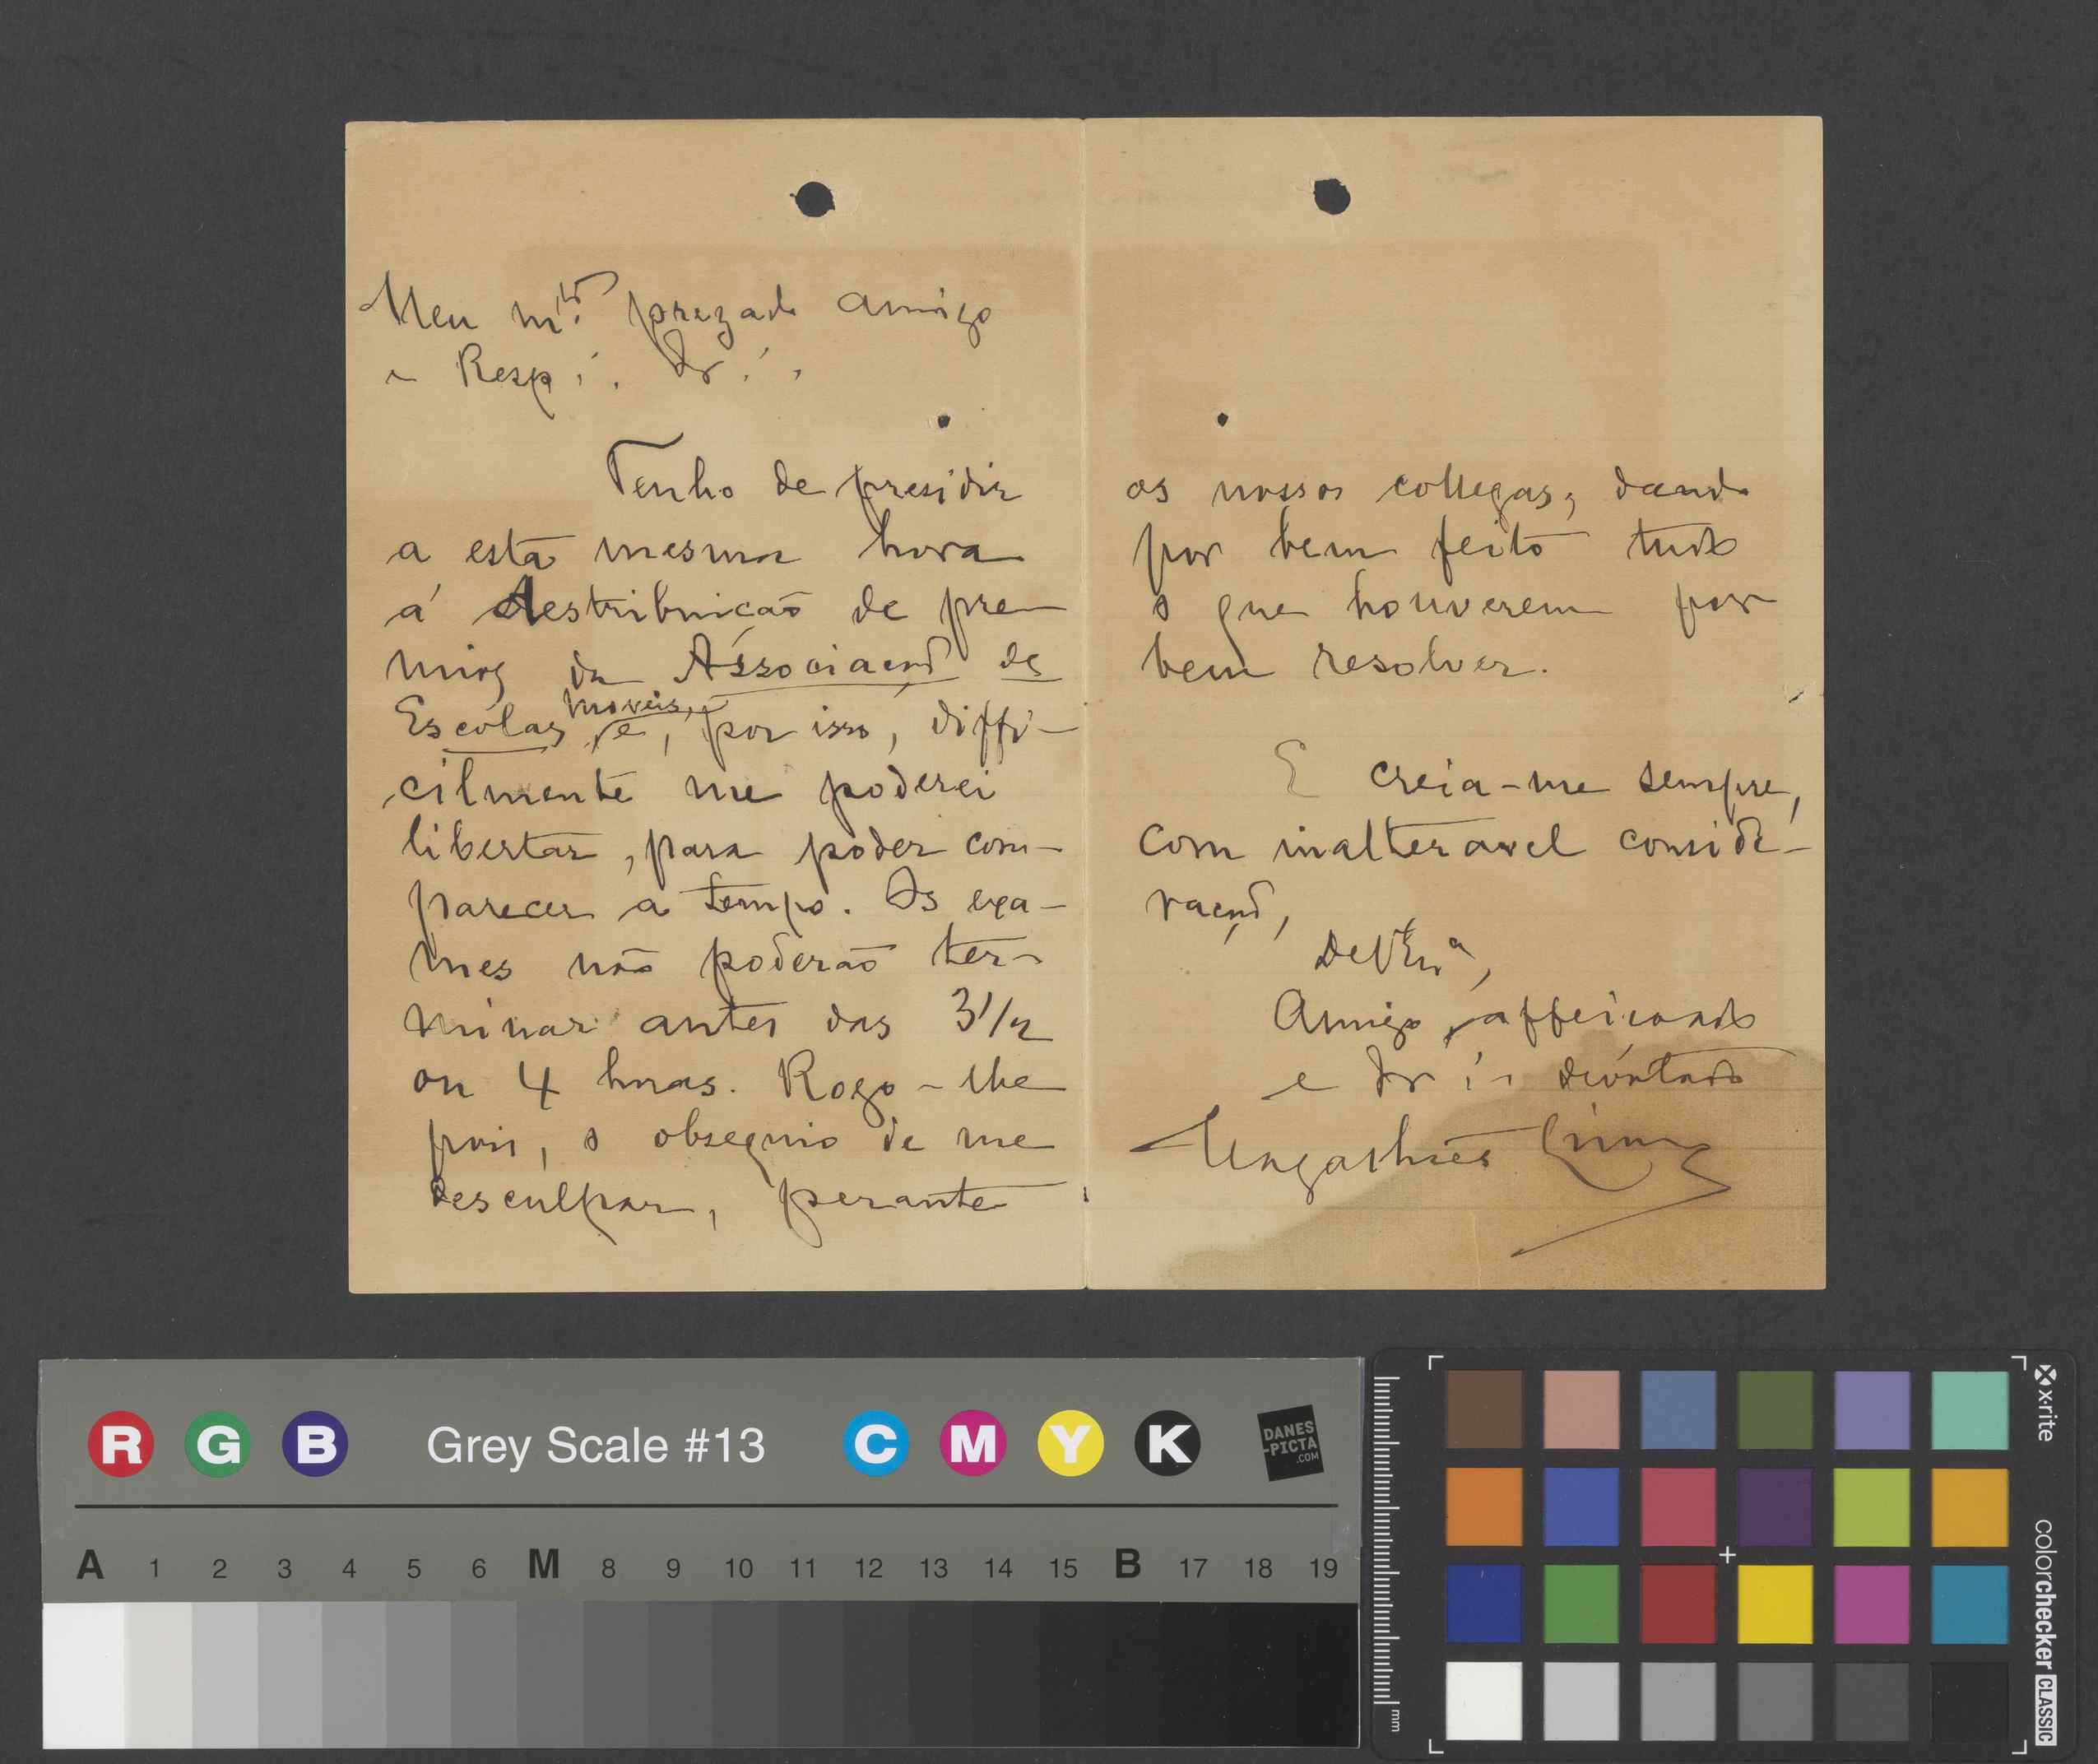 Meu m.to prezado amigo
e Resp∴ Ir∴
Tenho de presidir
a esta mesma hora
á destribuicão de pre
mios da Associação de
Escólas moveis, e, por isso, diffi-
cilmente me poderei
libertar, para poder com-
parecer a tempo. Os exa-
mes não poderão ter-
minar antes das 3 1/2
ou 4 horas. Rogo-lhe
pois, o obsequio de me
desculpar, perante
os nossos collegas, dando
por bem feito tudo
o que houverem por
bem resolver.
E creia-me sempre,
com inalteravel conside-
ração,
De V. Ex.a,
Amigo affeiçoado
e Ir∴ devotado
Magalhães Lima
R G B Grey Scale #13 C M Y K DANES-PICTA.COM
A 1 2 3 4 5 6 M 8 9 10 11 12 13 14 15 B 17 18 19
mm
x-rite
colorchecker CLASSIC